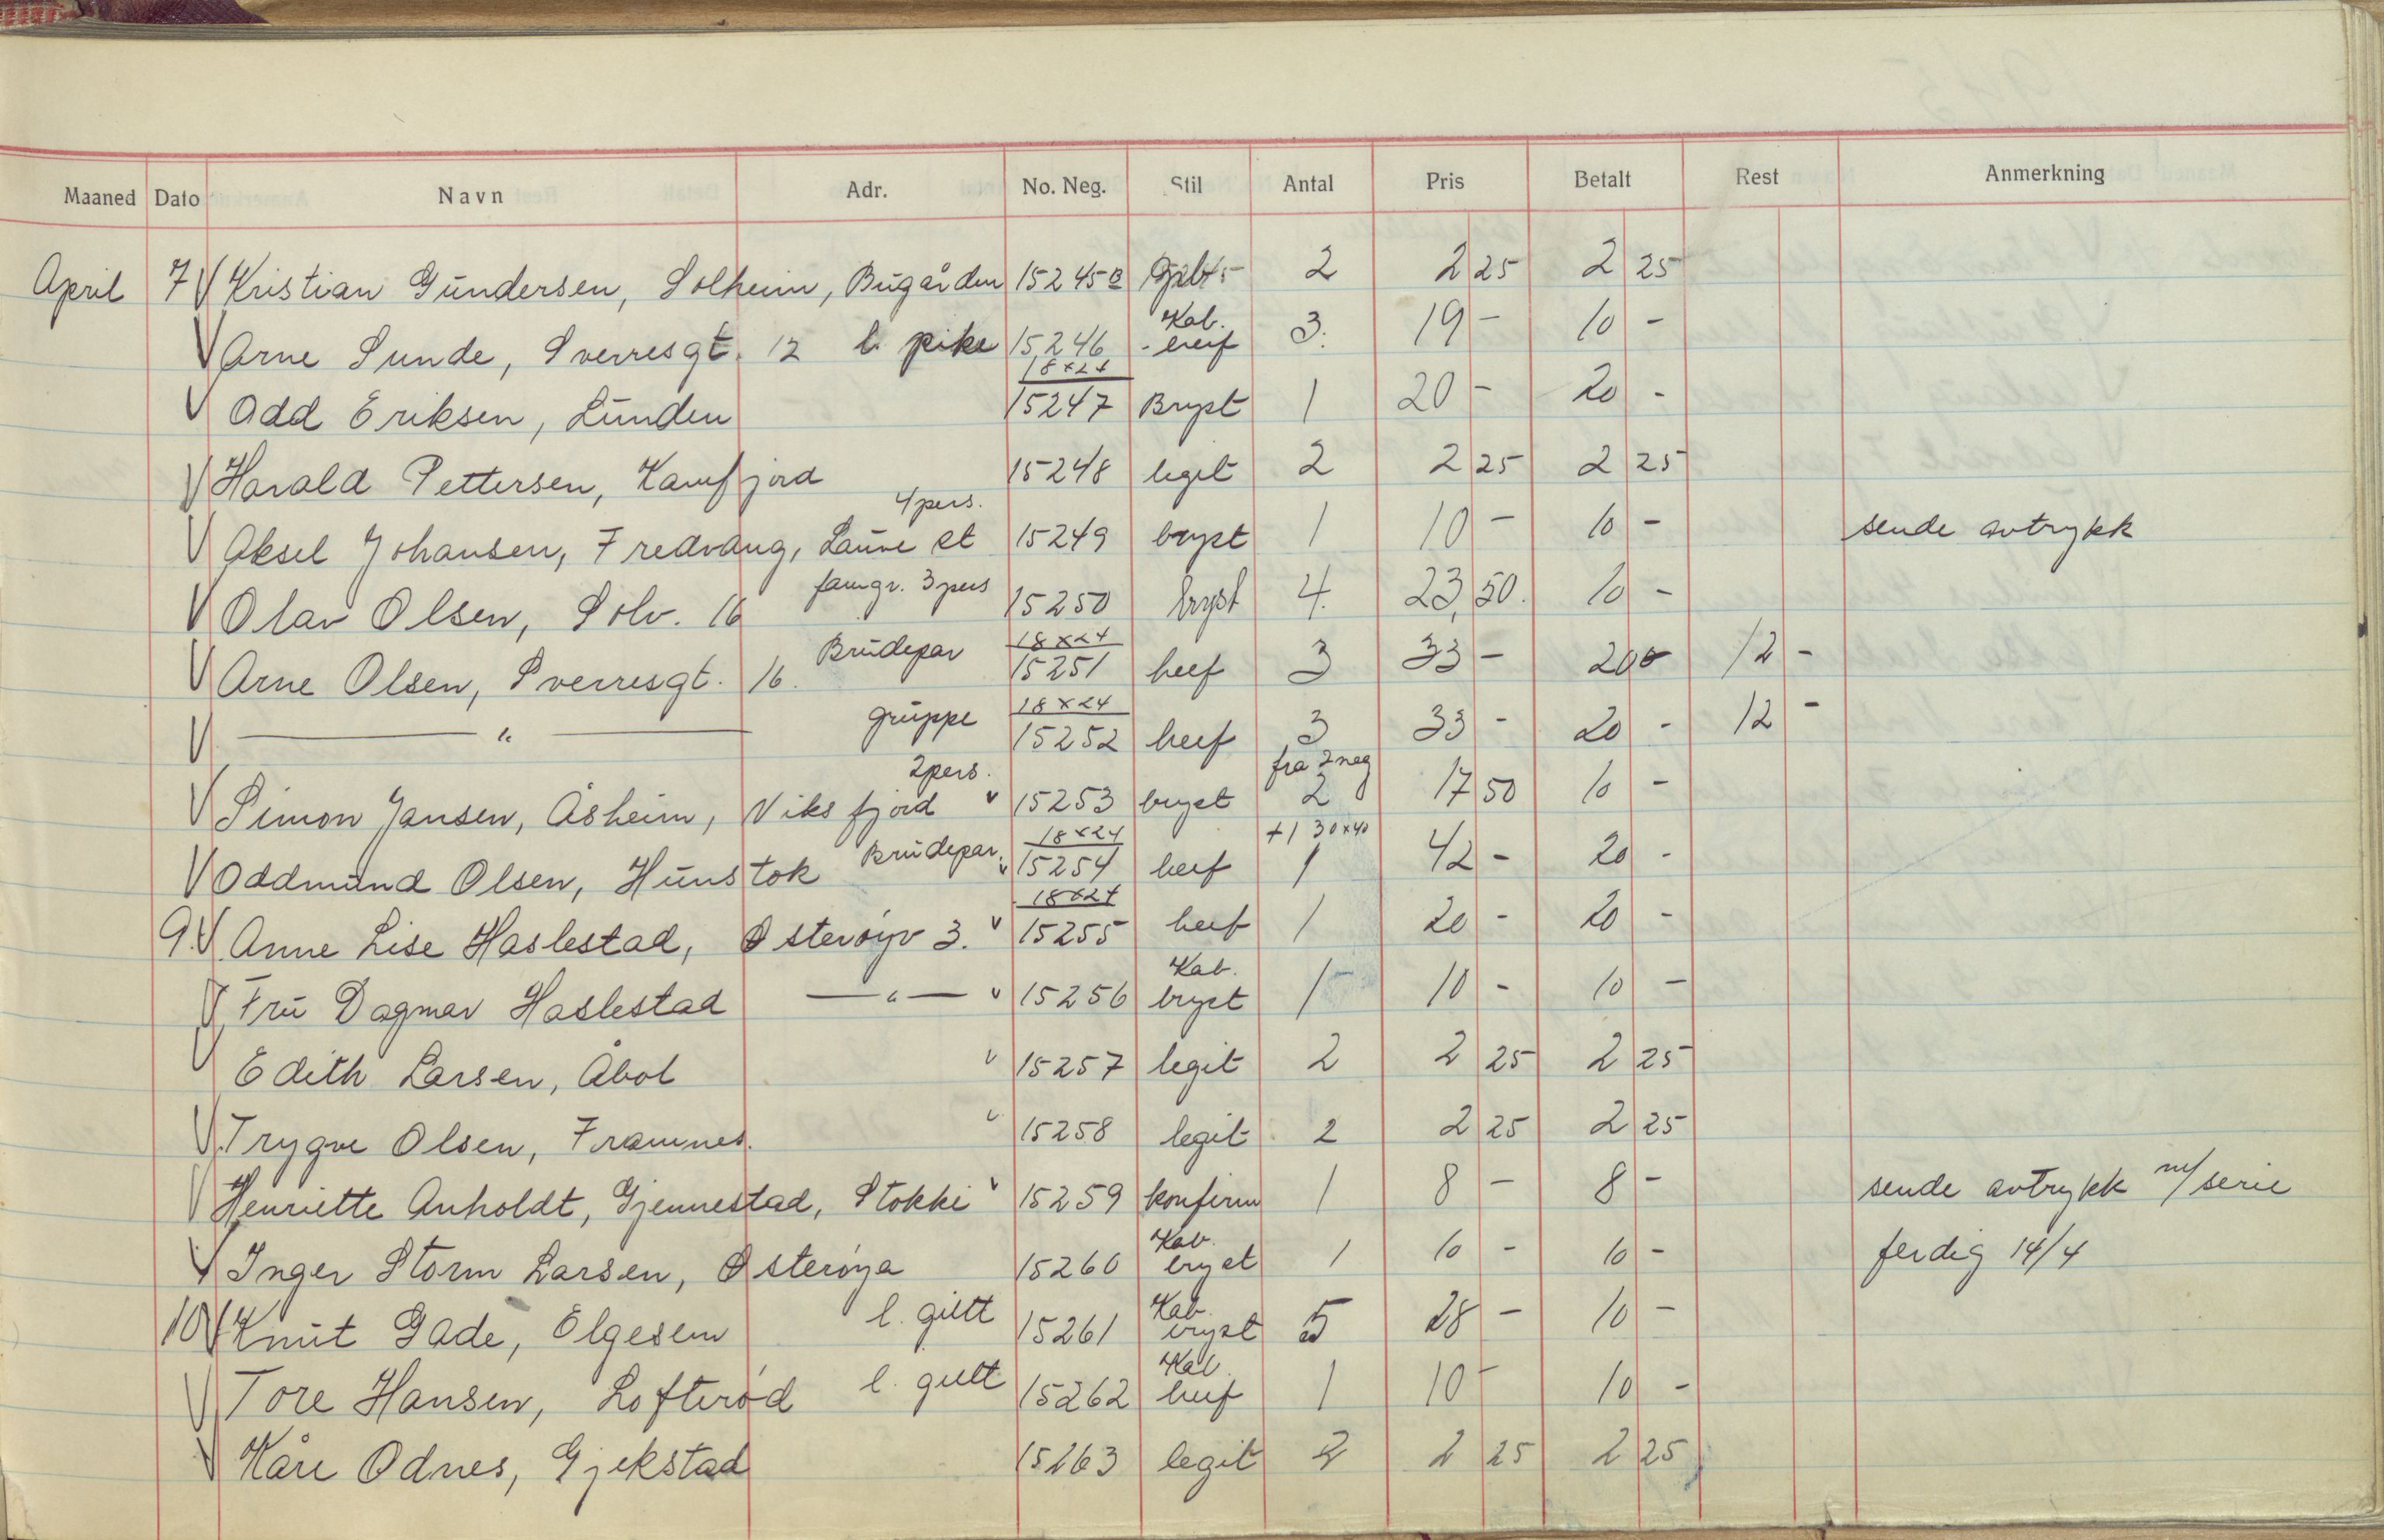 Maaned Dato Navn Adr. No. Neg. Stil Antal Pris Betalt Rest Anmerkning
April 7 V Kristian Gundersen, Solheim, Bugården 15245B 2 2 25 2 25
V Arne Sunde, Sverresgt. 12 l. pike 15246 Kab. heuf 3. 19 - 10 -
V Odd Eriksen, Lunden 18x24 15247 Bryst 1 20 - 20 -
V Harald Pettersen, Kamfjord 15248 legit 2 2 25 2 25
V Aksel Johansen, Fredvang, Lauve st 4 pers. 15249 bryst 1 10 - 10 - sende avtrykk
V Olav Olsen, Solv. 16 famgr. 3 pers 15250 bryst 4. 23,50. 10 -
V Arne Olsen, Sverresgt. 16. Brudepar 18x24 15251 heef 3 33 - 20 12 -
V — " — gruppe 18x24 15252 heef 3 33 - 20 - 12 -
V Simon Jansen, Åsheim, Viksfjord 2 pers. v 15253 bryst fra 2 neg 2 17 50 10 -
V Oddmund Olsen, Hunstok Brudepar. v 18x24 15254 heef +1 30x40 1 42 - 20 -
9. V Anne Lise Haslestad, Østerøyv 3. v 18x24 15255 heef 1 20 - 20 -
V Fru Dagmar Haslestad — " — v 15256 Kab. bryst 1 10 - 10 -
V Edith Larsen, Åbol v 15257 legit 2 2 25 2 25
V Trygve Olsen, Framnes. v 15258 legit 2 2 25 2 25
V Henriette Anholdt, Gjennestad, Stokke v 15259 konfirm 1 8 - 8 - sende avtrykk m/serie
V Inger Storm Larsen, Østerøya 15260 Kab. bryst 1 10 - 10 - ferdig 14/4
10 V Knut Gade, Elgesem l. gutt 15261 Kab. bryst 5 28 - 10 -
V Tore Hansen, Lofterød l. gutt 15262 Kab. heef 1 10 - 10 -
V Kåre Odnes, Gjekstad 15263 legit 2 2 25 2 25